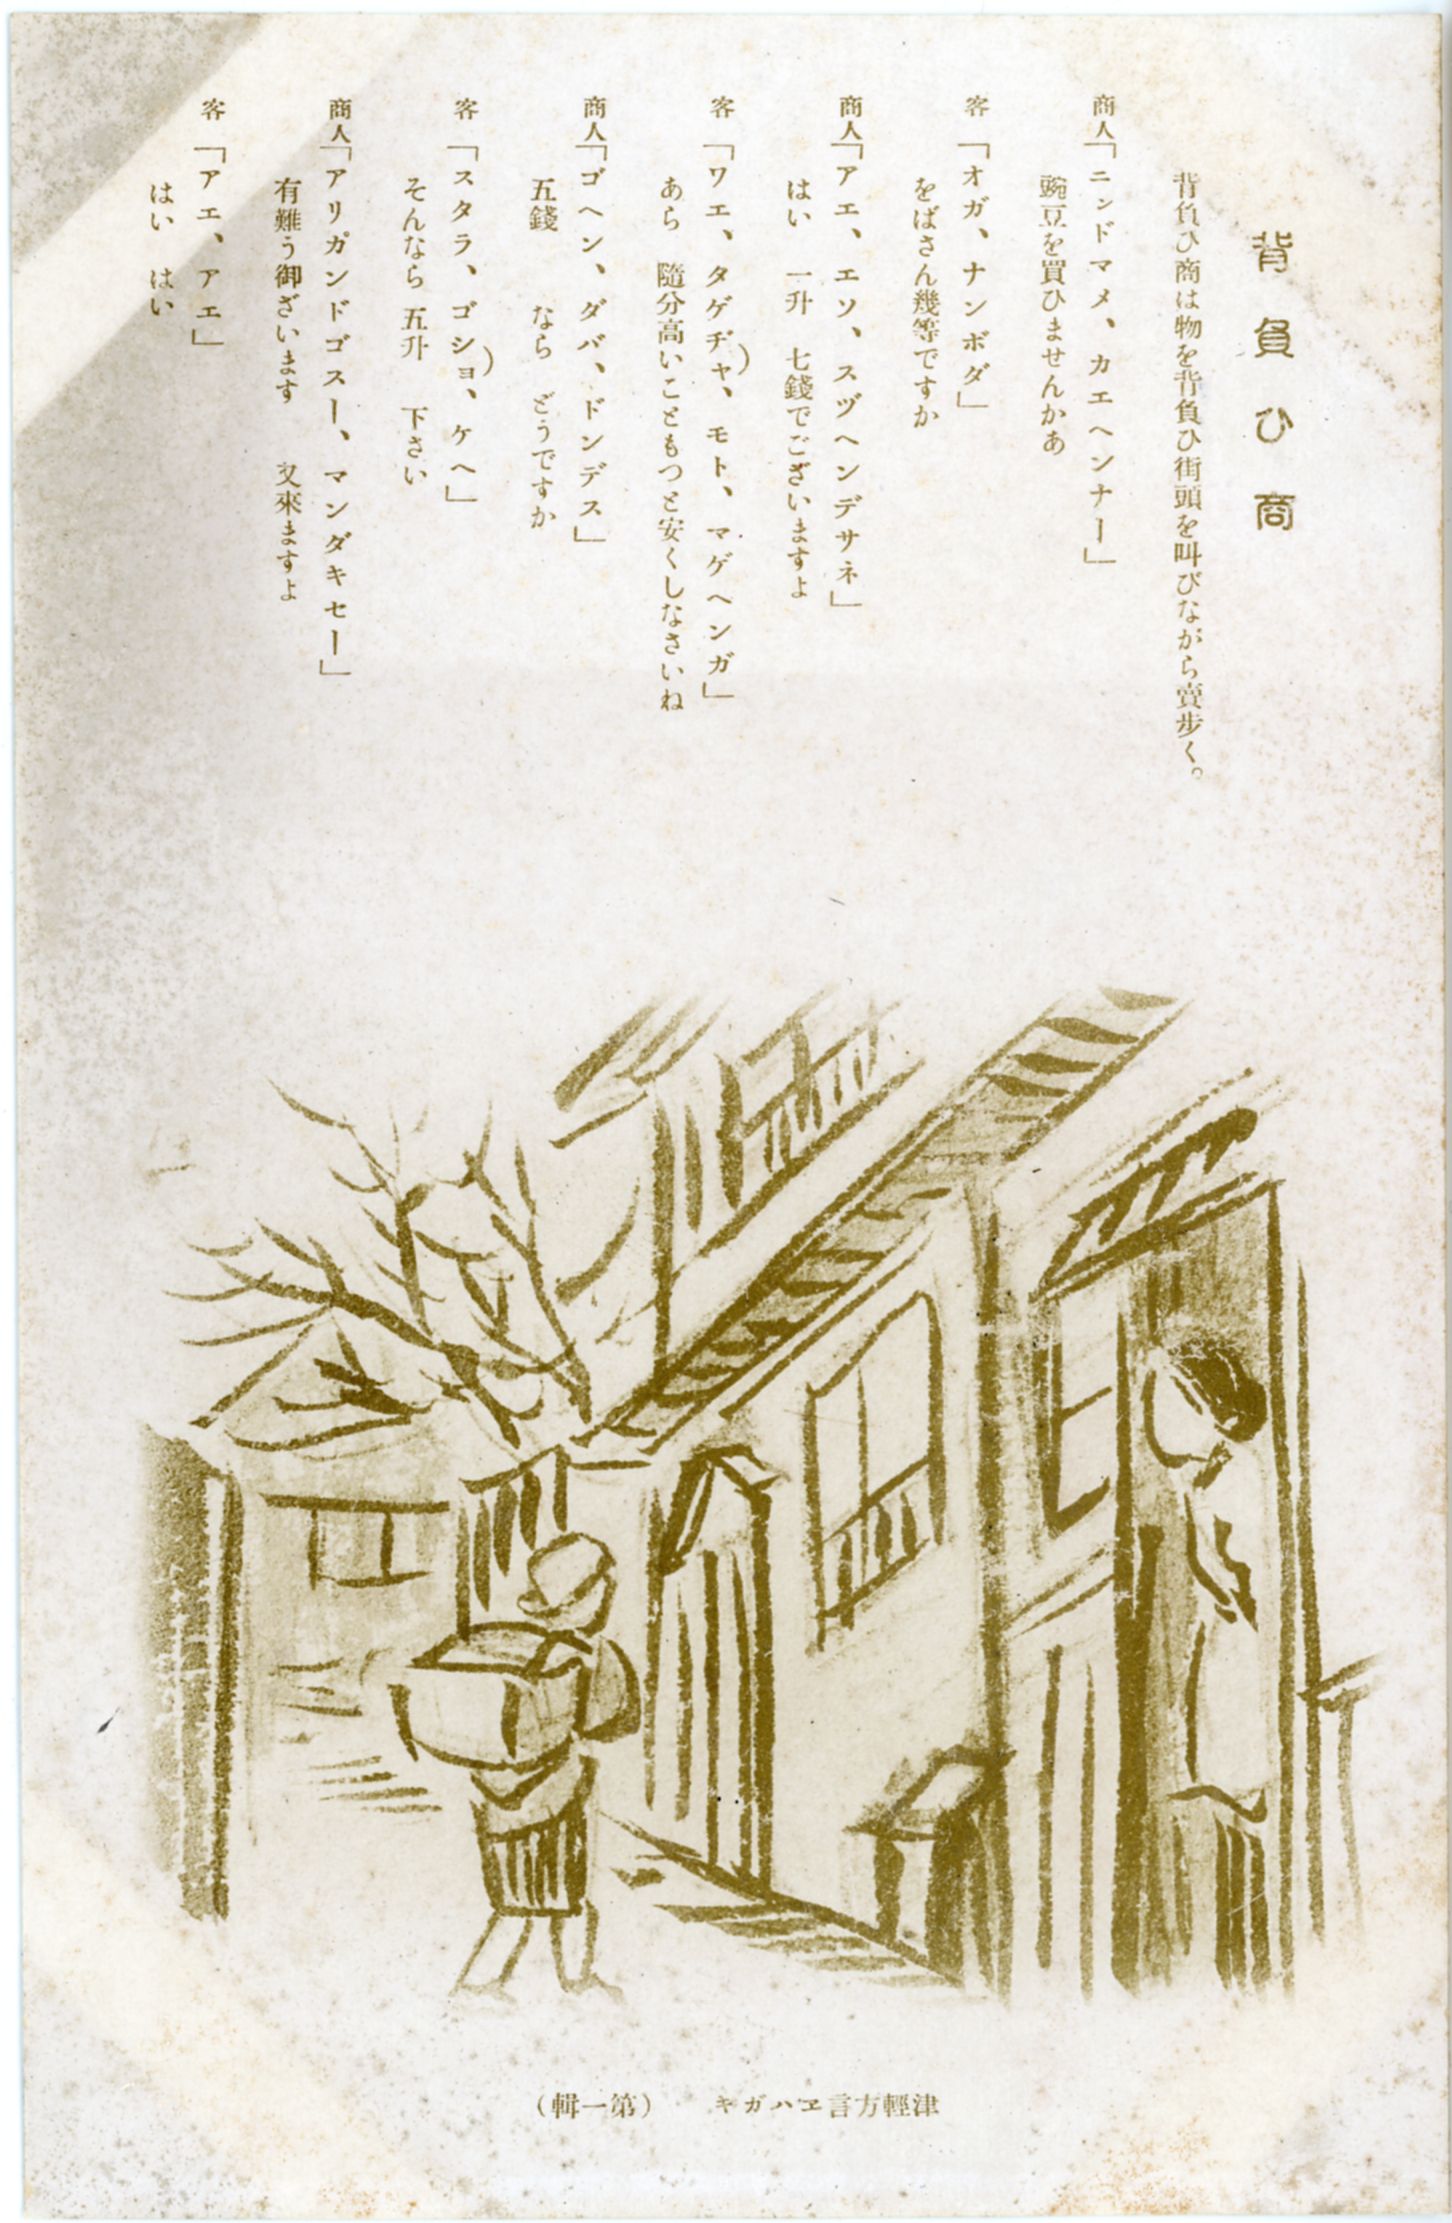 背負ひ商
背負ひ商は物を背負ひ街頭を叫びながら賣步く。
商人「ニンドマメ、カエヘンナー」
豌豆を買ひませんかあ
客「オガ、ナンボダ」
をばさん幾等ですか
商人「アエ、エソ、スヅヘンデサネ」
はい 一升 七錢でございますよ
客「ワエ、タゲヂャ、モト、マゲヘンガ」
あら 隨分高いこともつと安くしなさいね
商人「ゴヘン、ダバ、ドンデス」
五錢 なら どうですか
客「スタラ、ゴショ、ケヘ」
そんなら 五升 下さい
商人「アリガンドゴスー、マンダキセー」
有難う御ざいます 又來ますよ
客「アエ、アエ」
はい はい
津輕方言ヱハガキ (第一輯)